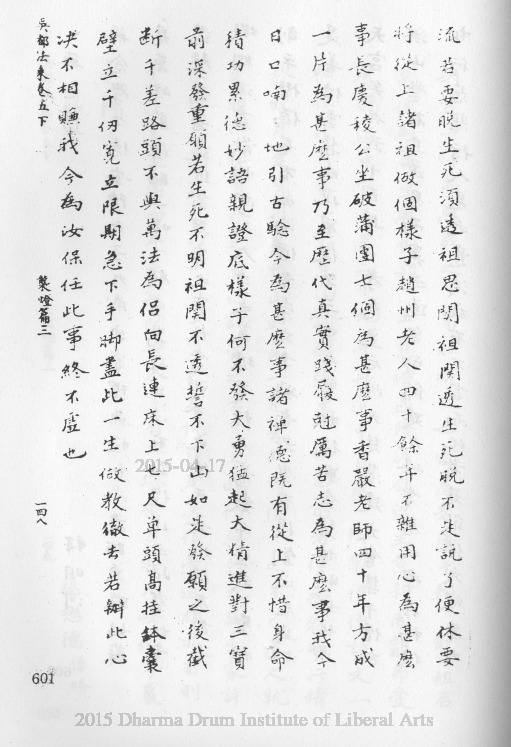 流若要脫生死須透祖思関祖関透生死脫不是說了便休要
將從上諸祖做個樣子趙州老人四十餘年不雜用心為甚麽
事長慶稜公坐破蒲團七個為甚麽事香嚴老師四十年方成
一片為甚麽事乃至歷代真實踐履尅厲苦志為甚麽事我今
日口喃〻地引古騐今為甚麽事諸禪德旣有從上不惜身命
積功累德妙語親證底樣子何不發大勇猛起大精進對三寶
前深發重願若生死不明祖関不透誓不下山如是發願之後截
断千差路頭不與萬法為侣向長連床上七尺单頭髙挂鉢囊
壁立千仞寛立限期急下手脚盡此一生做教徹去若辦此心
决不相賺我今為汝保任此事終不虛也
吳都法乘卷五下
製燈篇三
一四八
601
2015-04-17
2015 Dharma Drum Institute of Liberal Arts